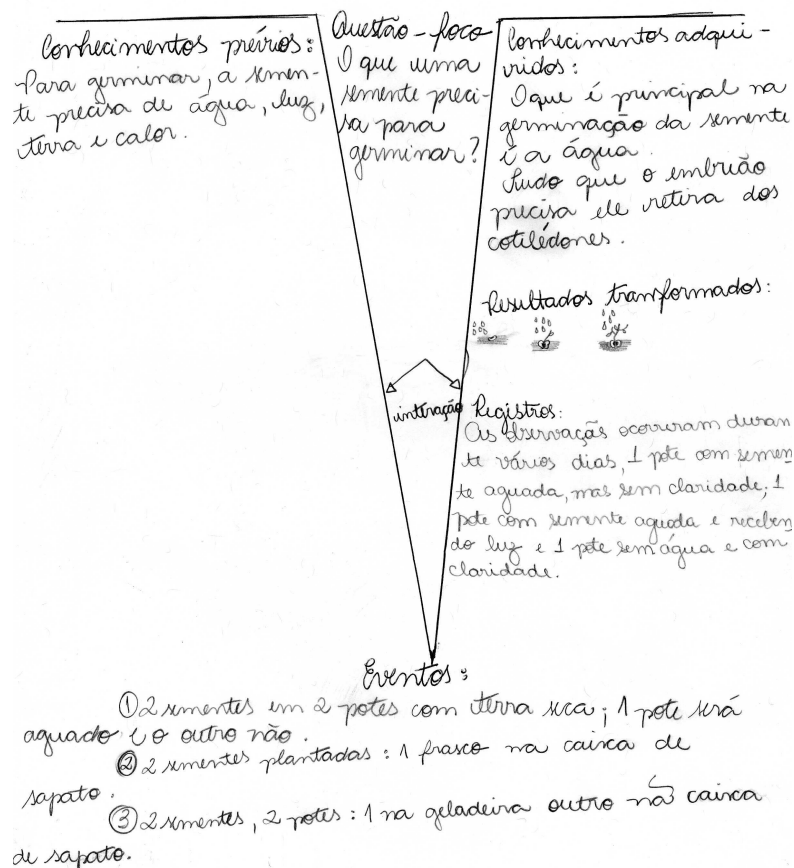 Conhecimentos prévios:
Para germinar, a semen-
te precisa de água, luz,
terra e calor.
Questão-foco
O que uma
semente preci-
sa para
germinar?
Conhecimentos adqui-
ridos:
O que é principal na
germinação da semente
é a água.
Tudo que o embrião
precisa ele retira dos
cotilédones.
Resultados transformados:
interação
Registros:
As observações ocorreram duran
te vários dias, 1 pote com semen
te aguada, mas sem claridade; 1
pote com semente aguada e receben
do luz e 1 pote sem água e com
claridade.
Eventos:
① 2 sementes em 2 potes com terra seca; 1 pote será
aguado e o outro não.
② 2 sementes plantadas: 1 frasco na caixa de
sapato.
③ 2 sementes, 2 potes: 1 na geladeira outro na caixa
de sapato.